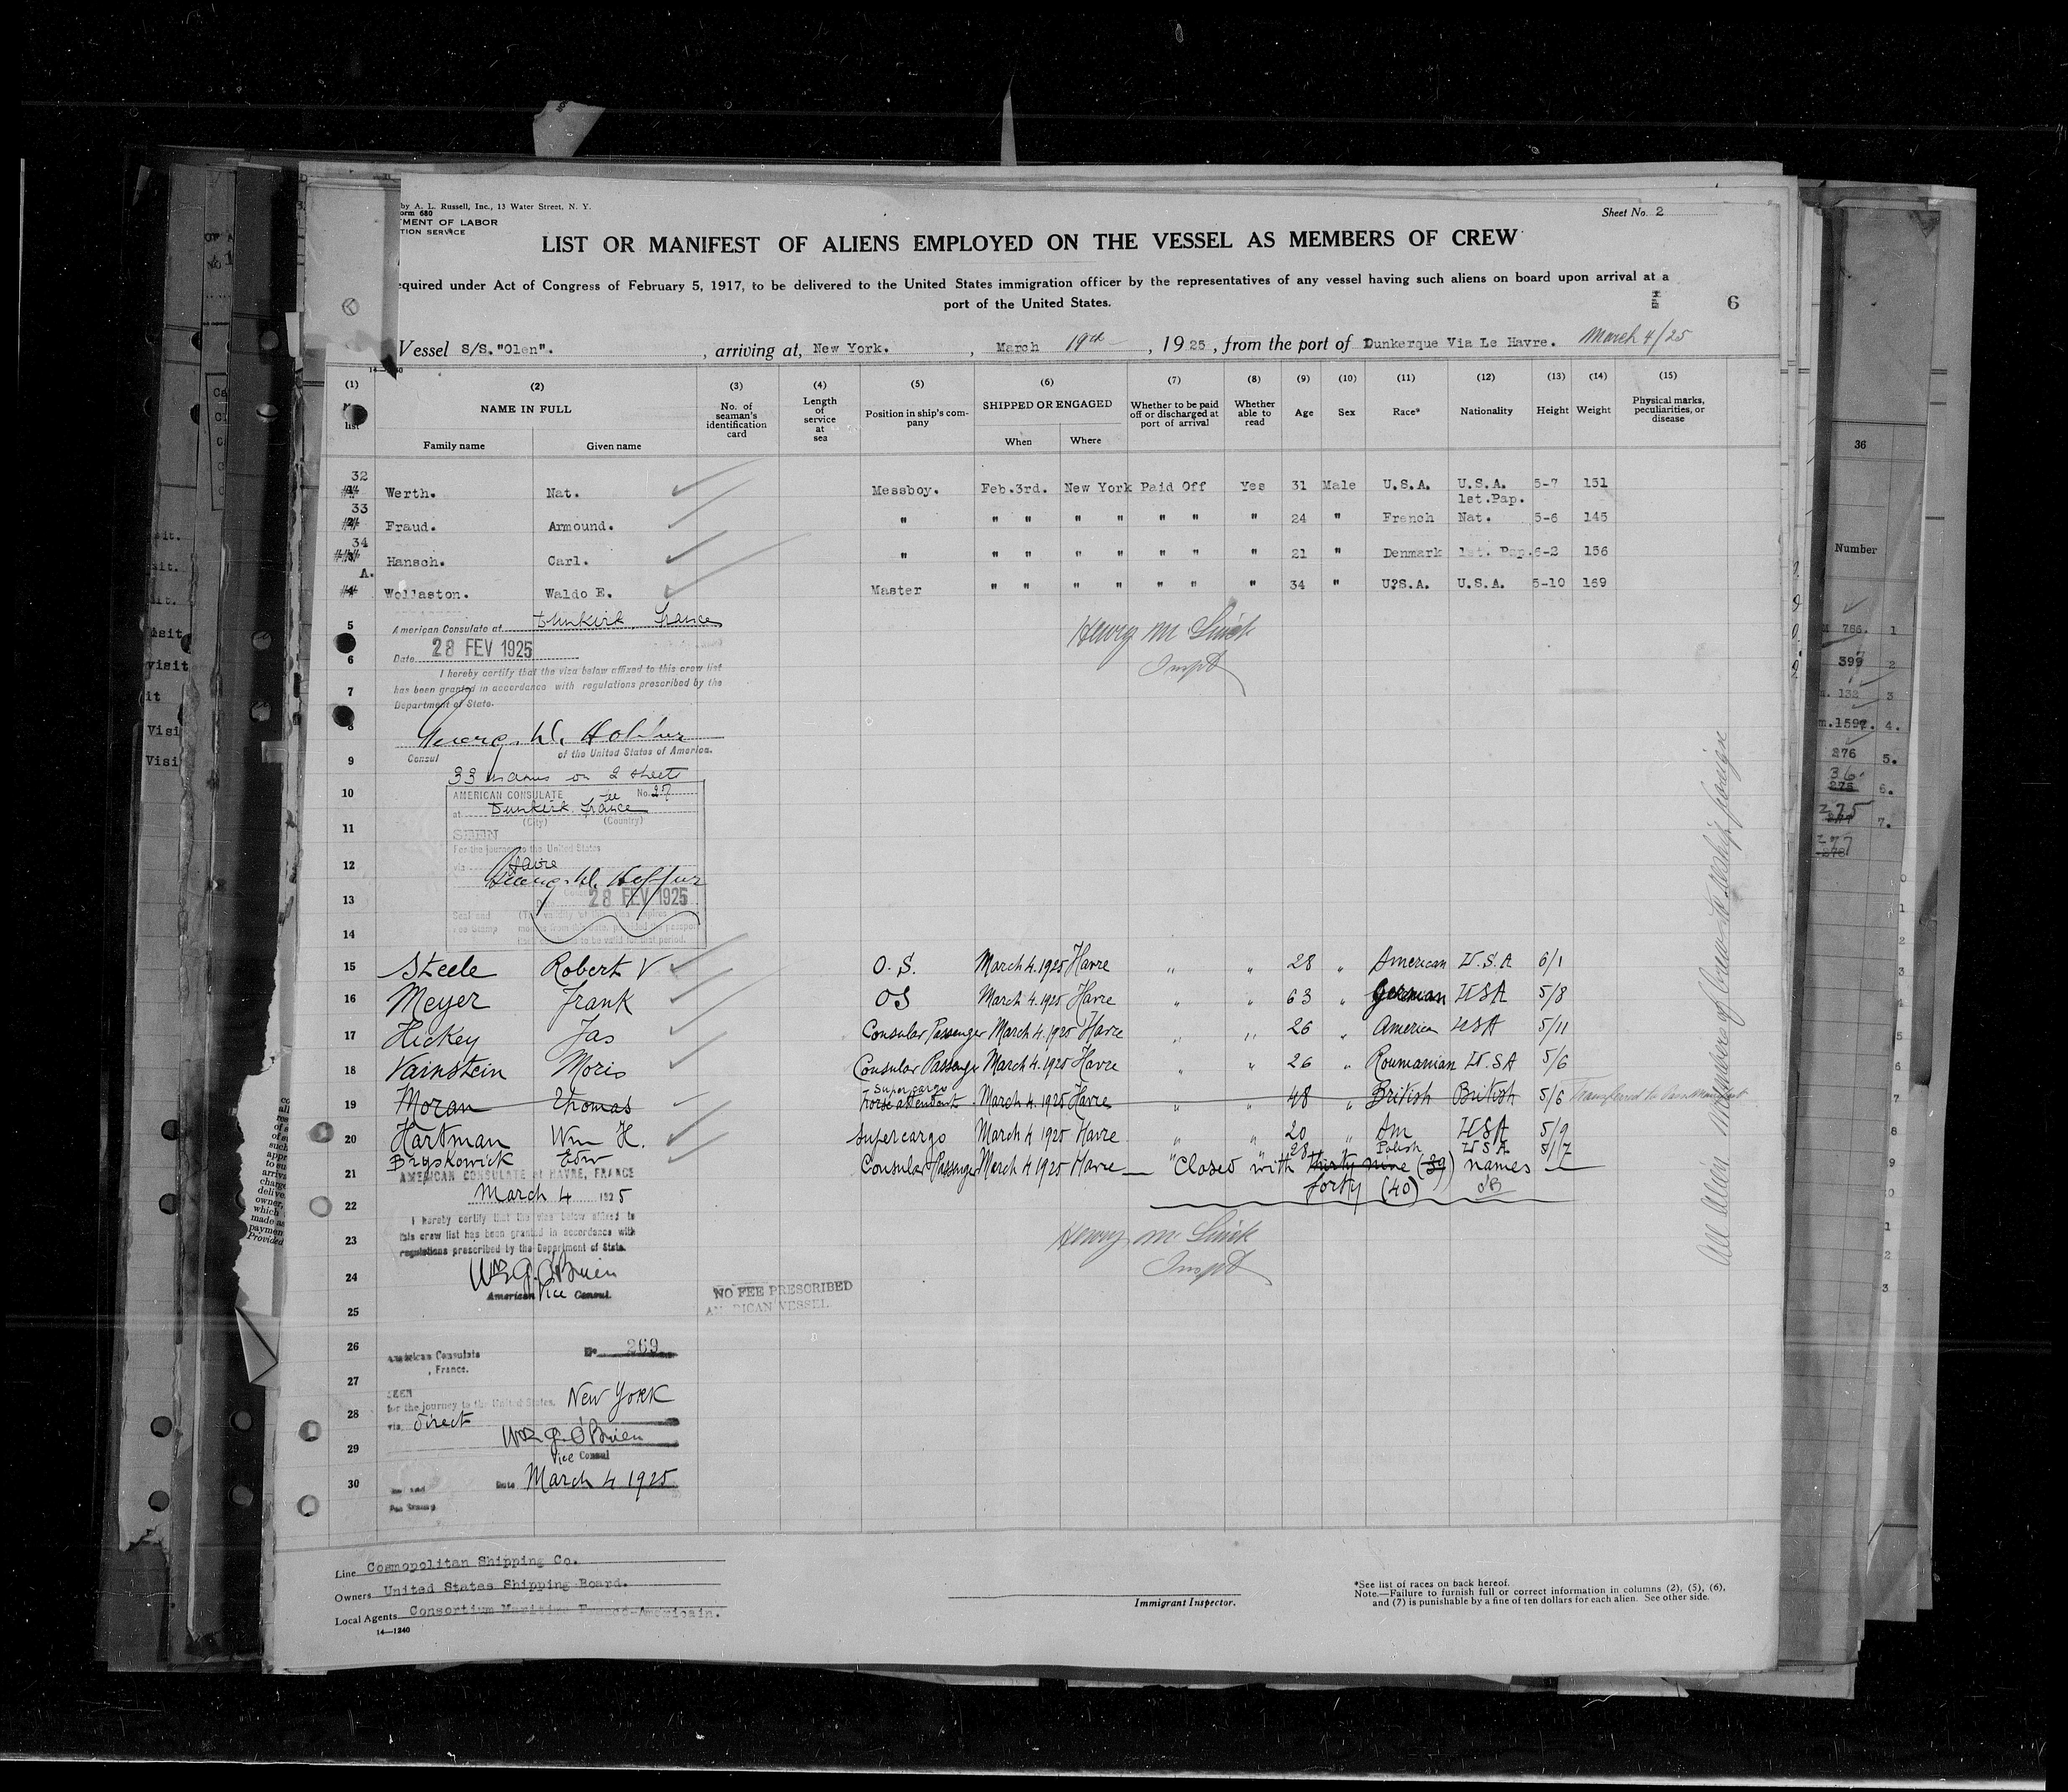 by A. L. Russell, Inc., 13 Water Street, N. Y.
orm 680
TMENT OF LABOR
TION SERVICE
Sheet No. 2
LIST OR MANIFEST OF ALIENS EMPLOYED ON THE VESSEL AS MEMBERS OF CREW
equired under Act of Congress of February 5, 1917, to be delivered to the United States immigration officer by the representatives of any vessel having such aliens on board upon arrival at a
port of the United States.
6
Vessel S/S."Olen". , arriving at, New York. , March 19th , 1925 , from the port of Dunkerque Via Le Havre. March 4/25
(1) (2) (3) (4) (5) (6) (7) (8) (9) (10) (11) (12) (13) (14) (15)
list
NAME IN FULL
Family name Given name
No. of seaman's identification card
Length of service at sea
Position in ship's company
SHIPPED OR ENGAGED
When Where
Whether to be paid off or discharged at port of arrival
Whether able to read
Age Sex Race* Nationality Height Weight
Physical marks, peculiarities, or disease
32 Werth. Nat. Messboy. Feb.3rd. New York Paid Off Yes 31 Male U.S.A. U.S.A. 5-7 151
1st.Pap.
33 Fraud. Armound. " " " " " " " " 24 " French Nat. 5-6 145
34 Hansch. Carl. " " " " " " " " 21 " Denmark 1st. Pap. 6-2 156
A. Wollaston. Waldo E. Master " " " " " " " 34 " U.S.A. U.S.A. 5-10 169
5 American Consulate at Dunkirk, France
Henry M
Inspt
6 Date 28 FEV 1925
I hereby certify that the visa below affixed to this crew list
7 has been granted in accordance with regulations prescribed by the
Department of State.
8
9 Consul of the United States of America.
33 names on 2 sheets
10 AMERICAN CONSULATE No. 257
at Dunkirk France
11 (City) (Country)
SEEN
For the journey to the United States
12 via Havre
13 Date 28 FEV 1925
14
15 Steele Robert V O.S. March 4.1925 Havre " " 28 " American U.S.A 6/1
16 Meyer Frank OS March 4.1925 Havre " " 63 " German USA 5/8
17 Hickey Jas Consular Passenger March 4.1925 Havre " " 26 " American USA 5/11
18 Vainstein Moris Consular Passenger March 4.1925 Havre " " 26 " Roumanian U.SA 5/6
Supercargo
19 Moran Thomas horse attendant March 4.1925 Havre " " 48 " British British 5/6 Transferred to Pass Manifest
20 Hartman Wm H. Supercargo March 4 1925 Havre " " 20 " Am USA 5/9
Bryskowick Edw Consular Passenger March 4 1925 Havre 28 Polish USA 5/7
21 "Closed with thirty nine (39) names
forty (40) O'B
AMERICAN CONSULATE at HAVRE, FRANCE
March 4 1925
22 I hereby certify that the visa below affixed to
23 this crew list has been granted in accordance with
regulations prescribed by the Department of State.
Henry M
Inspt
24 Wm J. O'Brien
American Vice Consul
NO FEE PRESCRIBED
AMERICAN VESSEL
25
26 American Consulate No 269
, France.
27
SEEN
for the journey to the United States, New York
28 via Direct
29 Wm J. O'Brien
Vice Consul
30 Date March 4 1925
All alien members of crew to reship foreign
Line Cosmopolitan Shipping Co.
Owners United States Shipping Board.
Local Agents Consortium Maritime Franco-Americain.
14—1240
Immigrant Inspector.
*See list of races on back hereof.
Note.—Failure to furnish full or correct information in columns (2), (5), (6),
and (7) is punishable by a fine of ten dollars for each alien. See other side.
36
Number